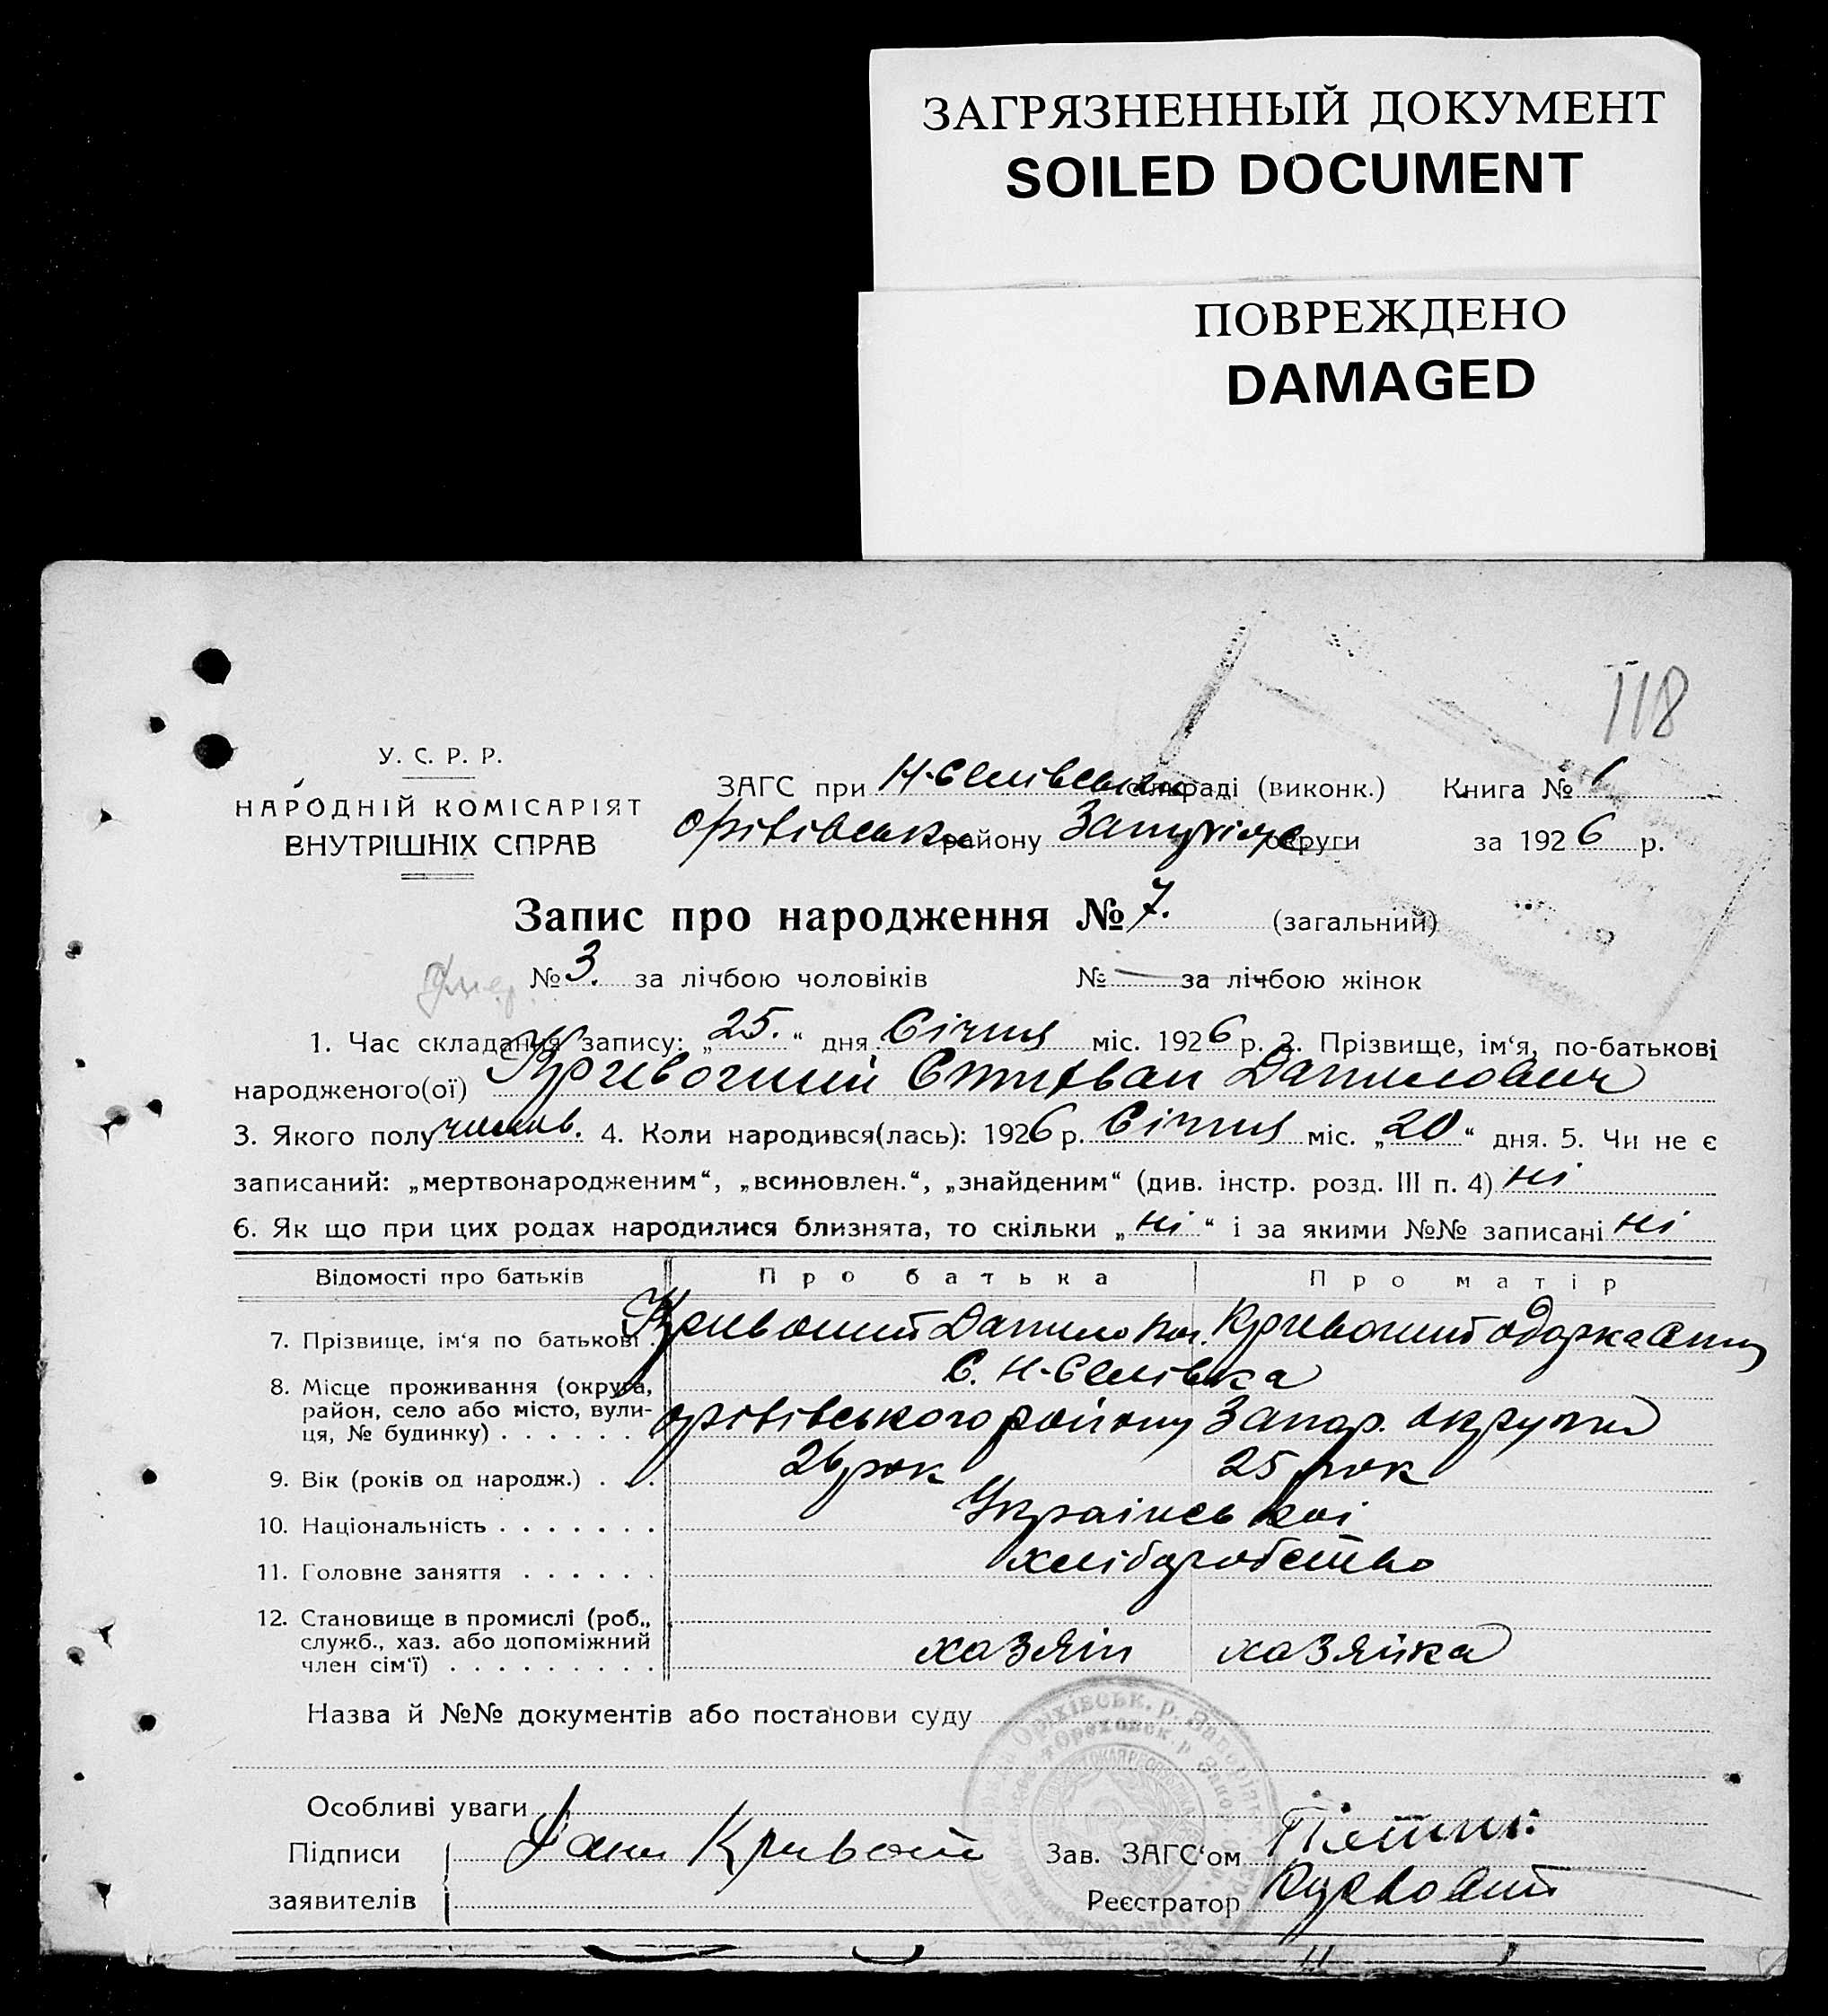 ЗАГРЯЗНЕННЫЙ ДОКУМЕНТ
SOILED DOCUMENT
ПОВРЕЖДЕНО
DAMAGED
118
У. С. Р. Р.
НАРОДНІЙ КОМІСАРІЯТ
ВНУТРІШНІХ СПРАВ
ЗАГС при сільраді (виконк.) Книга № 1
району округи за 1926 р.
Запис про народження № 7. (загальний)
№ 3. за лічбою чоловіків № — за лічбою жінок
1. Час складання запису: „25.“ дня Січня міс. 1926 р. 2. Прізвище, ім‘я, по-батькові
народженого(ої) Данилович
3. Якого полу 4. Коли народився(лась): 1926 р. Січня міс. „20“ дня. 5. Чи не є
записаний: „мертвонародженим“, „всиновлен.“, „знайденим“ (див. інстр. розд. III п. 4) ні
6. Як що при цих родах народилися близнята, то скільки „ні“ і за якими №№ записані ні
Відомості про батьків Про батька Про матір
7. Прізвище, ім‘я по батькові Данило Одарка
8. Місце проживання (округа,
район, село або місто, вули-
ця, № будинку) району Запор. округи
9. Вік (років од народж.) 26 рок 25 рок
10. Національність Української
11. Головне заняття хліборобство
12. Становище в промислі (роб.,
служб., хаз. або допоміжний
член сім‘ї) хазяін хазяйка
Назва й №№ документів або постанови суду
Особливі уваги
Підписи
заявителів
Зав. ЗАГС‘ом
Реєстратор